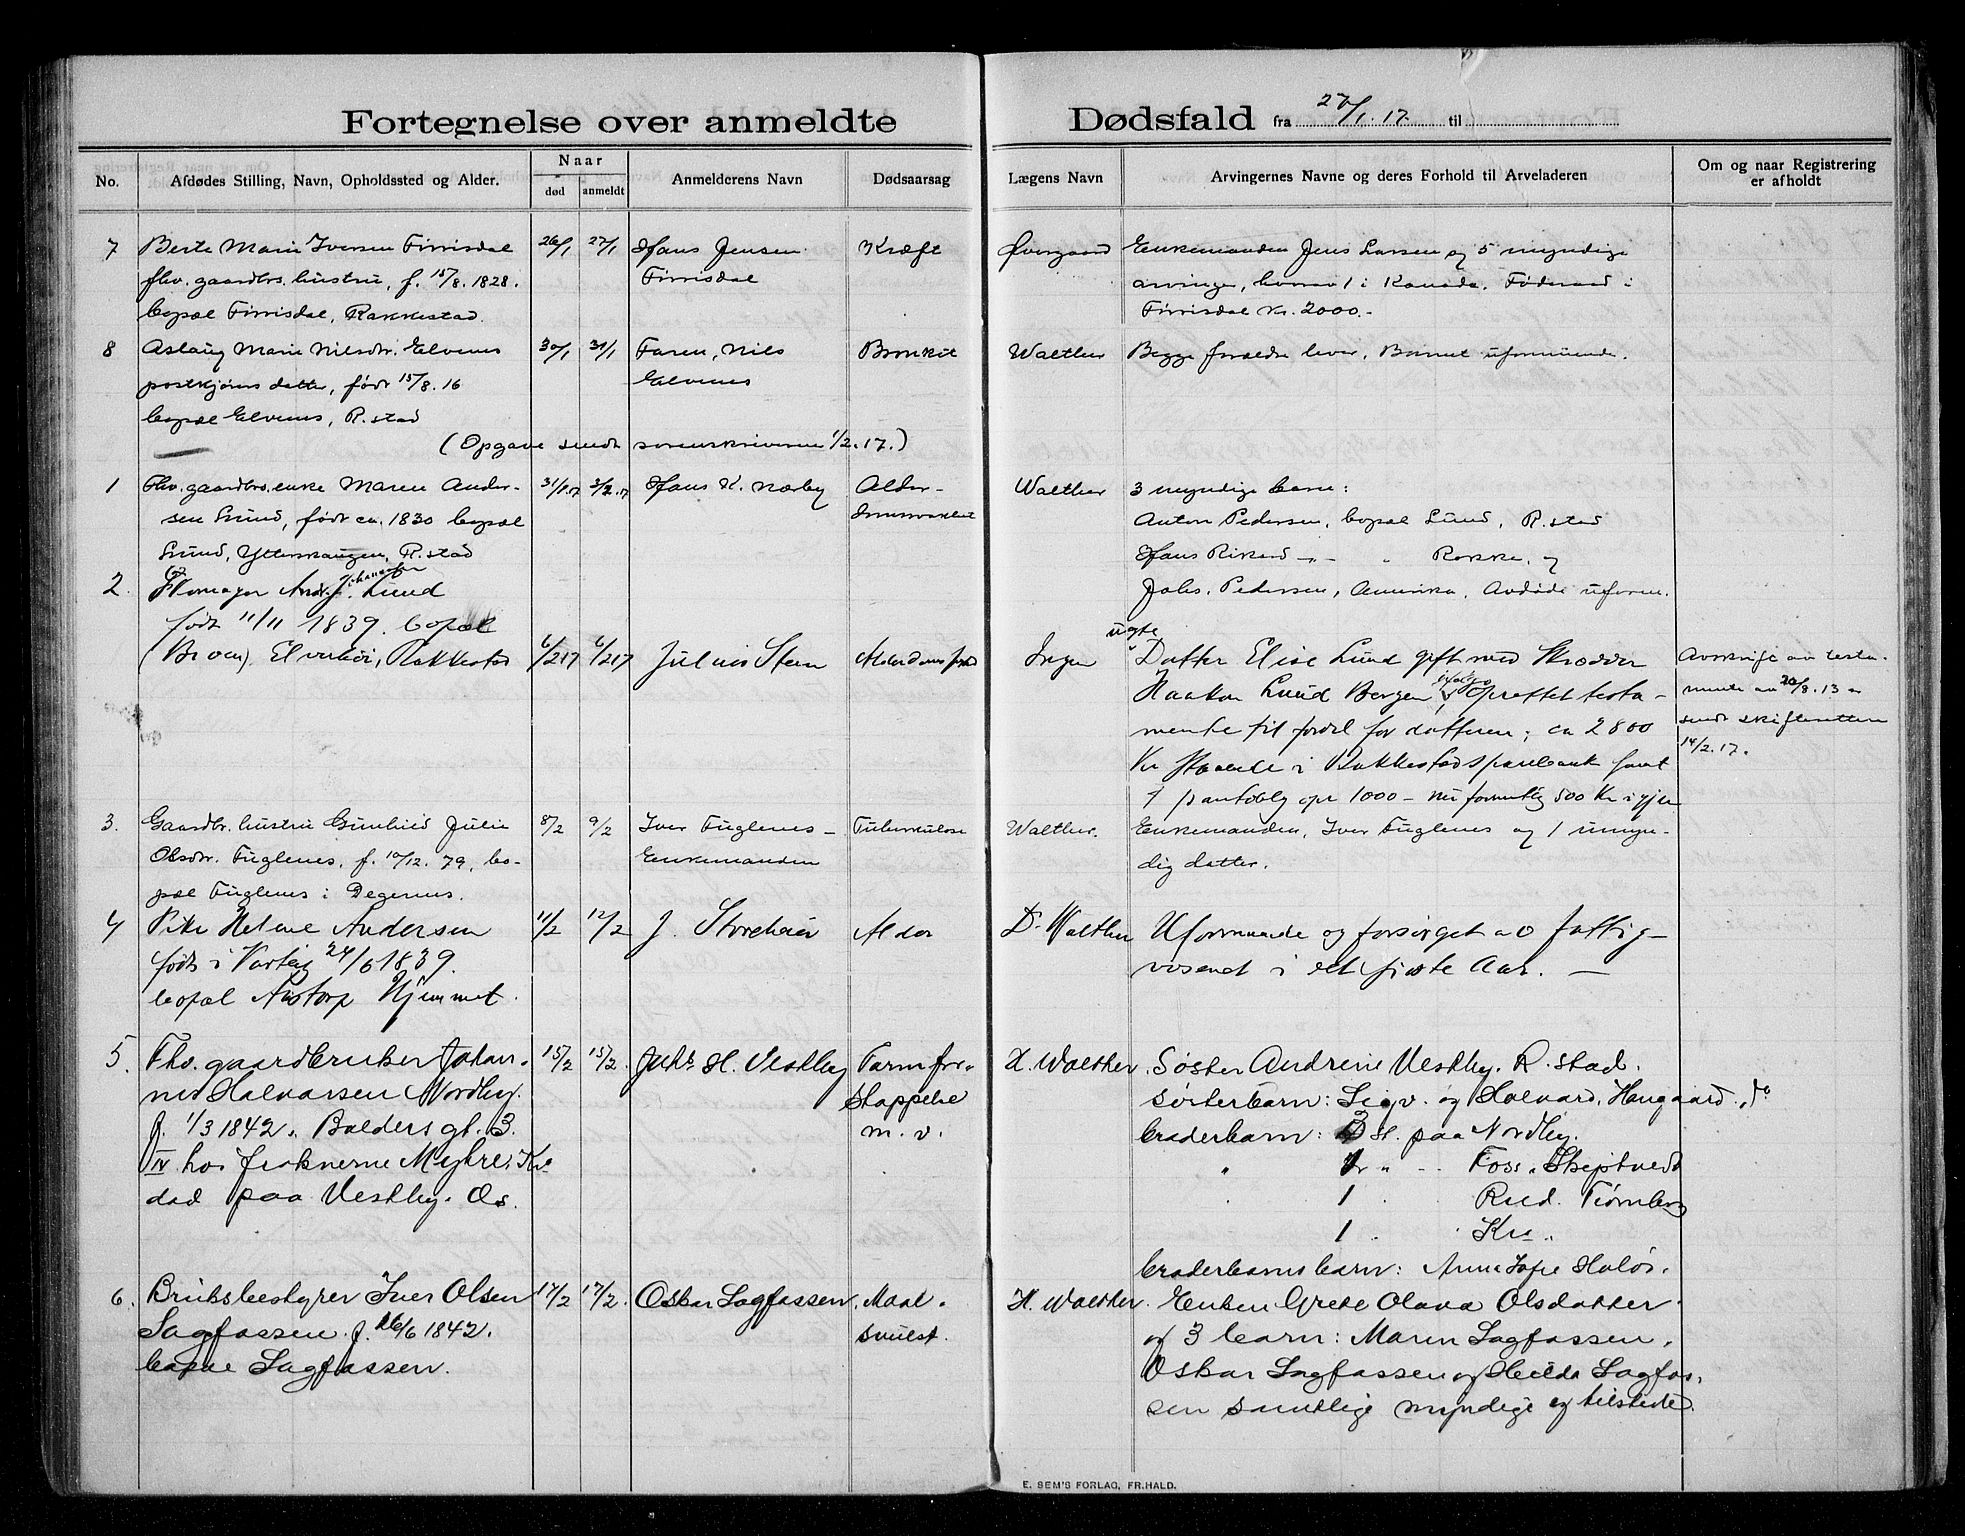 Fortegnelse over anmeldte Dødsfald fra 27/1. 17. til
No. Afdødes Stilling, Navn, Opholdssted og Alder. Naar død anmeldt Anmelderens Navn Dødsaarsag Lægens Navn Arvingernes Navne og deres Forhold til Arveladeren Om og naar Registrering er afholdt
7 Berte Marie Iversen Firrisdal 26/1 27/1 Hans Jensen Kræft Øvergaard Enkemanden Jens Larsen og 5 myndige
fhv. gaardbrs. hustru, f. 15/8. 1828. Firrisdal arvinger, hvorav 1 i Kanada. Føderaad i
bopæl Firrisdal, Rakkestad. Firrisdal kr. 2000.-
8 Aslaug Marie Nilsdtr. Elvenes 30/1 31/1 Faren, Nils Bronkit Walther Begge forældre lever, Barnet uformuende.
postkjørers datter, født 15/8. 16 Elvenes
bopæl Elvenes, R.stad
(Opgave sendt sorenskriveren 1/2. 17.)
1 Fhv. gaardbrs. enke Maren Ander- 31/1.17 3/2.17 Hans K. Nærby Alder- Walther 3 myndige barn:
sen Lund, født ca. 1830 bopæl Anton Pedersen, bopæl Lund, R.stad
Lund, Ytterskaugen, R.stad Hans Rikard -"- " Rakke, og
2. Andr. Johannesen Lund Johs. Pedersen, Amerika. Avdøde uform.
født 11/11 1839. bopæl
(Broen), Elverhøi, Rakkestad 6/2 17 6/2 17 Julius Steen Ingen ugte Datter Elise Lund gift med Skrædder
Haakon Lund Bergen oprettet testa-
mente til fordel for datteren; ca 2800
Kr staaende i Rakkestad sparebank samt
1 pantoblg opr 1000 - nu formentlig 500 Kr igjen
Avskrift av testa-
mente av 20/8. 13 er
sendt skifteretten
14/2. 17.
3. Gaardbr. hustru Gunhild Julie 8/2 9/2 Iver Fuglenes - Tuberkulose Walther. Enkemanden, Iver Fuglenes og 1 umyn-
Olsdtr. Fuglenes, f. 10/12. 79, bo- Enkemanden dig datter.
pæl Fuglenes i Degernes.
4 Pike Helene Andersen 11/2 12/2 J. Storehaier Alder D. Walther Uformuende og forsørget av fattig-
født i Varteig 24/6 1839. væsenet i det siste Aar. -
bopæl Aastorp Hjemmet.
5. Fhv. gaardbruker Johan- 15/2 15/2. Johs H. Vestby Tarmfor- H. Walther. Søster Andrine Vestby. R.stad.
nes Halvorsen Nordby. stoppelse Søsterbarn: Sigv. og Halvard, Haugaard. do
f. 1/3 1842. Baldersgt. 3. m. v. broderbarn: 3 st. paa Nordby.
IV hos frøknerne Myhre, Kra " 1 " - Foss. Skiptvedt
død paa Vestby. Os. 1 Rud. Tiørnberg
1 Kra.
broderbarns barn: Anne Sofie Holøs.
6. Bruksbestyrer Iver Olsen 17/2 17/2. Oskar Sagfossen, Maal- H. Walther. Enken Grete Olava Olsdatter
Sagfossen. f. 26/6 1842. svulst. og 3 barn: Maren Sagfossen,
bopæl Sagfossen. Oskar Sagfossen og Hilda Sagfos-
sen samtlige myndige og tilstede.
E. SEM'S FORLAG, FR.HALD.